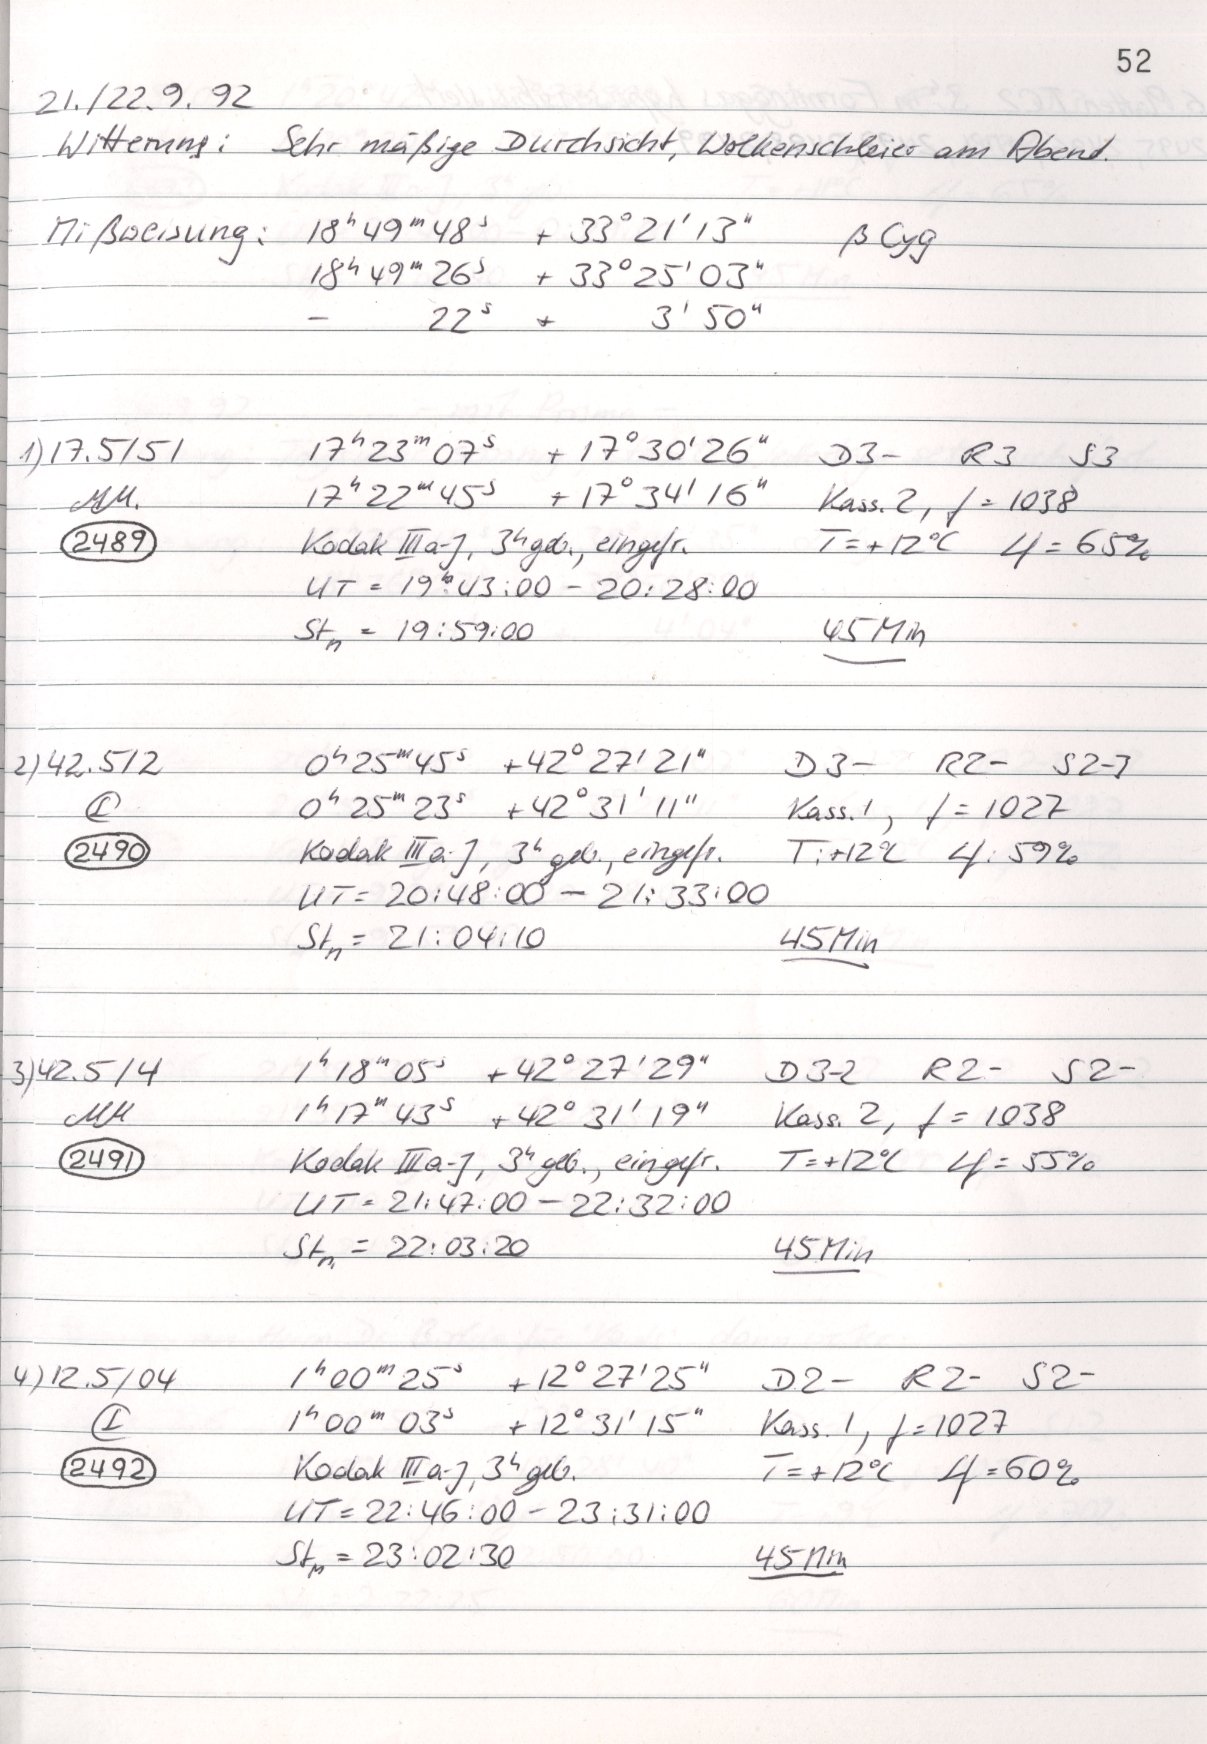 52
21./22.9.92
Witterung: Sehr mäßige Durchsicht, Wolkenschleier am Abend.
Mißweisung: 18ʰ49ᵐ48ˢ +33°21'13" β Cyg
18ʰ49ᵐ26ˢ +33°25'03"
- 22ˢ + 3'50"
1) 17.5/51 17ʰ23ᵐ07ˢ +17°30'26" D3- R3 S3
MM. 17ʰ22ᵐ45ˢ +17°34'16" Kass. 2, f=1038
2489 Kodak IIIa-J, 3ʰ geb., eingefr. T=+12°C φ=65%
UT = 19ʰ:43:00 - 20:28:00
Stₙ = 19:59:00 45 Min
2) 42.5/2 0ʰ25ᵐ45ˢ +42°27'21" D3- R2- S2-3
I 0ʰ25ᵐ23ˢ +42°31'11" Kass. 1, f=1027
2490 Kodak IIIa-J, 3ʰ geb., eingefr. T:+12°C φ: 59%
UT = 20:48:00 - 21:33:00
Stₙ = 21:04:10 45 Min
3) 42.5/4 1ʰ18ᵐ05ˢ +42°27'29" D3-2 R2- S2-
MM 1ʰ17ᵐ43ˢ +42°31'19" Kass. 2, f=1038
2491 Kodak IIIa-J, 3ʰ geb., eingefr. T=+12°C φ=55%
UT = 21:47:00 - 22:32:00
Stₙ = 22:03:20 45 Min
4) 12.5/04 1ʰ00ᵐ25ˢ +12°27'25" D2- R2- S2-
I 1ʰ00ᵐ03ˢ +12°31'15" Kass. 1, f=1027
2492 Kodak IIIa-J, 3ʰ geb. T=+12°C φ=60%
UT = 22:46:00 - 23:31:00
Stₙ = 23:02:30 45 Min